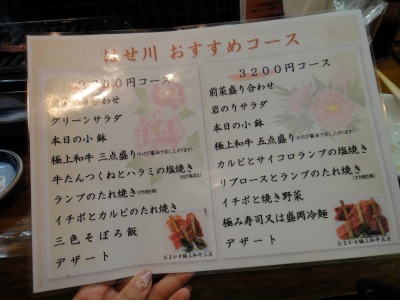 はせ川 おすすめコース
3200円コース
前菜盛り合わせ
グリーンサラダ
本日の小鉢
極上和牛 三点盛り
牛たんつくねとハラミの塩焼き
ランプのたれ焼き
イチボとカルビのたれ焼き
三色そぼろ飯
デザート
おまかせ極上和牛三点
3200円コース
前菜盛り合わせ
岩のりサラダ
本日の小鉢
極上和牛 五点盛り
カルビとサイコロランプの塩焼き
リブロースとランプのたれ焼き
イチボと焼き野菜
極み寿司又は盛岡冷麺
デザート
おまかせ極上和牛五点